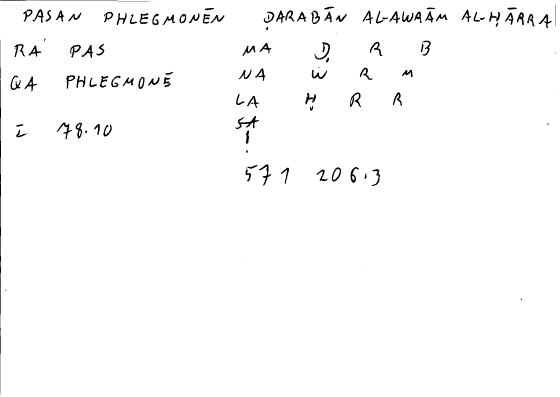 PASAN PHLEGMONĒN ḌARABĀN AL-AWAĀM AL-ḤĀRRA
RA PAS MA Ḍ R B
QA PHLEGMONĒ NA W R M
LA Ḥ R R
I 78.10 SA
571 206.3